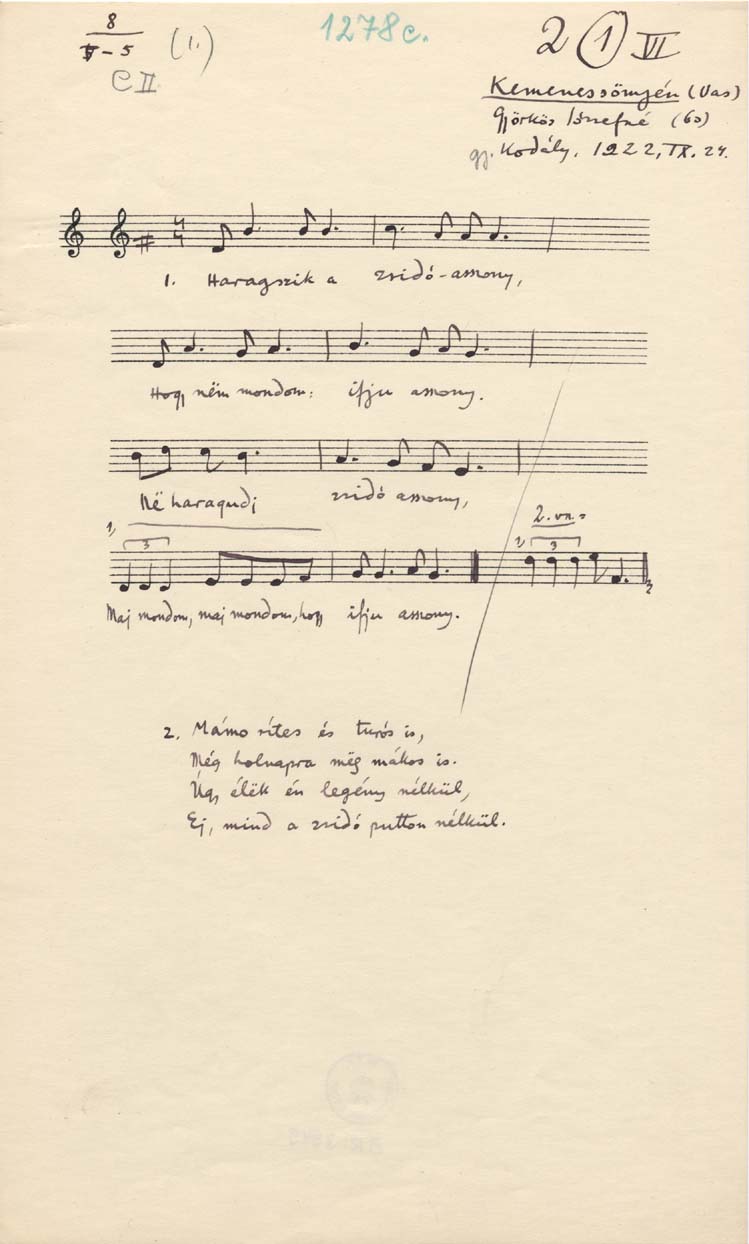 8
V-5
(1.)
C II
1278c.
2 1 VI
Kemenessömjén (Vas)
Györkös Józsefné (60)
gy. Kodály, 1922, IX. 24.
1. Haragszik a zsidó-assony,
Hogy nëm mondom: ifju assony.
Në haragudj zsidó assony,
2. vsz.
1,
3
2,
3
Maj mondom, maj mondom, hogy ifju assony.
2. Mámo rítes és turós is,
Még holnapra mëg mákos is.
Úgy élëk én legény nélkül,
Ej, mind a zsidó putton nélkül.